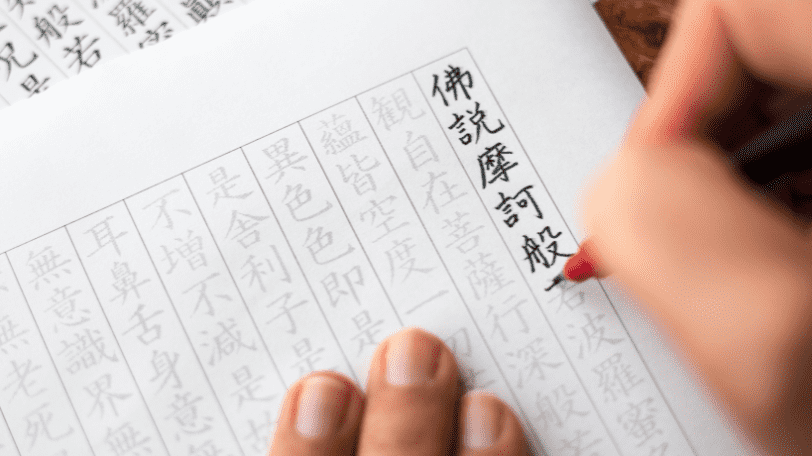 佛説摩訶般若波羅蜜
観自在菩薩行深般若
蘊皆空度一
異色色即是
是舎利子是
不増不減是故
耳鼻舌身意
無意識界無
無老死
羅蜜
般若
是